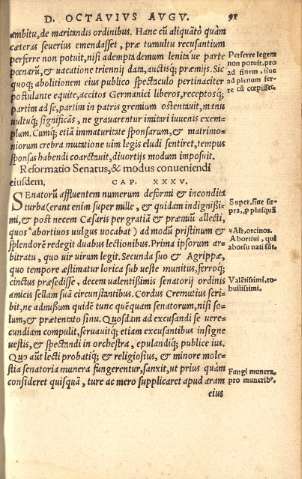 D. OCTAVIVS AVGV. 91
ambitu, de maritandis ordinibus. Hanc cũ aliquātò quàm
cæteras seuerius emendasset, præ tumultu recusantium
perferre non potuit, nisi adempta demum lenitáue parte
pœnarũ, & uacatione triennij data, auctisq́; præmijs. Sic
quoq; abolitionem eius publico spectaculo pertinaciter
postulante equite, accitos Germanici liberos, receptosq́;
partim ad se, partim in patris gremium ostentauit, manu
uultuq́; significās, ne grauarentur imitari iuuenis exem-
plum. Cumq́; etiā immaturitate sponsarum, & matrimo-
niorum crebra mutatione uim legis eludi sentiret, tempus
sponsas habendi coarctauit, diuortijs modum imposuit.
Reformatio Senatus, & modus conueniendi
eiusdem. CAP. XXXV.
SEnatorũ affluentem numerum deformi & incondita
turba (erant enim super mille, & quidam indignissi-
mi, & post necem Cæsaris per gratiā & præmiũ allecti,
quos abortiuos uulgus uocabat) ad modũ pristinum &
splendorē redegit duabus lectionibus. Prima ipsorum ar-
bitratu, quo uir uirum legit. Secunda suo & Agrippæ,
quo tempore æstimatur lorica sub ueste munitus, ferroq́;
cinctus præsedisse, decem ualentissimis senatorij ordinis
amicis sellam suā circunstantibus. Cordus Cremutius scri-
bit, ne admissum quidē tunc quēquam senatorum, nisi so-
lum, & prætentato sinu. Quosdam ad excusandi se uere-
cundiam compulit, seruauitq́; etiam excusantibus insigne
uestis, & spectandi in orchestra, epulandiq́; publice ius.
Quo aũt lecti probatiq́; & religiosius, & minore mole-
stia senatoria munera fungerentur, sanxit, ut prius quàm
consideret quisquā, ture ac mero supplicaret apud aram
eius
Perferre legem
non potuit, pro
ad finem, siue
ad plenum fer-
re cũ cœpisset.
abortiui, qui
abortu nati sũt.
Valētissimi, ro-
bustissimi.
Fungi munera,
pro muneribꝰ.